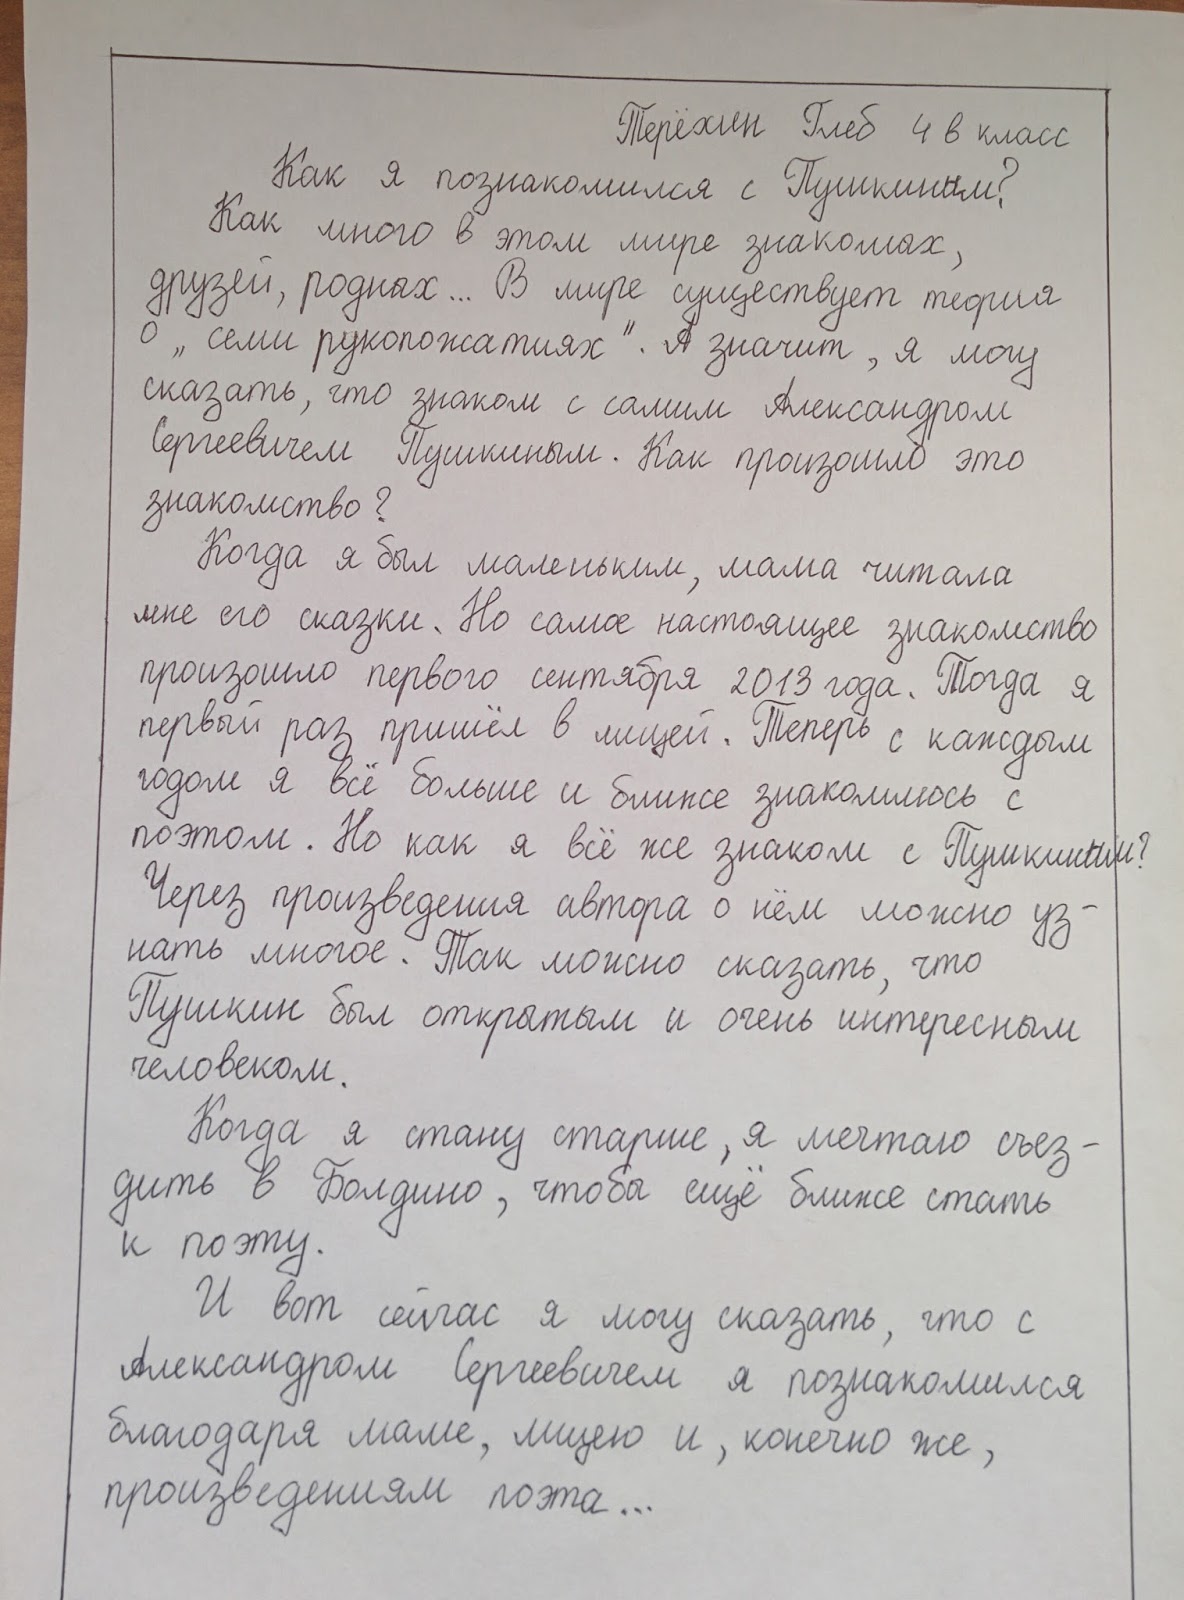 Терёхин Глеб 4 в класс
Как я познакомился с Пушкиным?
Как много в этом мире знакомых,
друзей, родных... В мире существует теория
о „семи рукопожатиях". А значит, я могу
сказать, что знаком с самим Александром
Сергеевичем Пушкиным. Как произошло это
знакомство?
Когда я был маленьким, мама читала
мне его сказки. Но самое настоящее знакомство
произошло первого сентября 2013 года. Тогда я
первый раз пришёл в лицей. Теперь с каждым
годом я всё больше и ближе знакомлюсь с
поэтом. Но как я всё же знаком с Пушкиным?
Через произведения автора о нём можно уз-
нать многое. Так можно сказать, что
Пушкин был открытым и очень интересным
человеком.
Когда я стану старше, я мечтаю съез-
дить в Болдино, чтобы ещё ближе стать
к поэту.
И вот сейчас я могу сказать, что с
Александром Сергеевичем я познакомился
благодаря маме, лицею и, конечно же,
произведениям поэта...